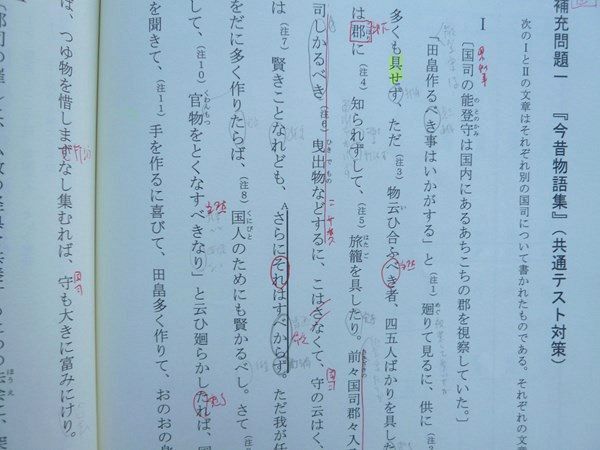 補充問題一 『今昔物語集』(共通テスト対策)
次のⅠとⅡの文章はそれぞれ別の国司について書かれたものである。それぞれの文章
Ⅰ
〔国司の能登守は国内にあるあちこちの郡を視察していた。〕
「田畠作るべき事はいかがする」と(注1)廻りて見るに、供に(注2)
多くも具せず、ただ(注3)物云ひ合ふべき者、四五人ばかりを具した
は郡に(注4)知られずして、(注5)旅籠を具したり。前々国司郡々入
司しかるべき(注6)曳出物などするに、こはさなくて、守の云はく、
は(注7)賢きことなれども、さらにそれはすべからず。ただ我が任
をだに多く作りたらば、(注8)国人のためにも賢かるべし。さて(注
して、(注10)官物をとくなすべきなり」と云ひ廻らかしたれば、
を聞きて、(注11)手を作るに喜びて、田畠多く作りて、おのおの身
は、つゆ物を惜しまずなし集むれば、守も大きに富みにけり。